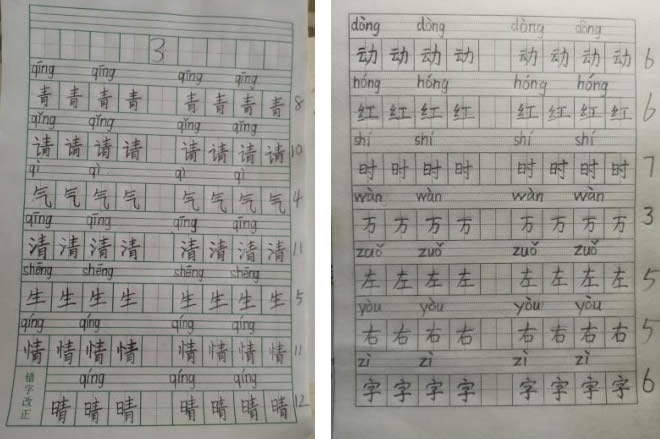 3
qīng qīng qīng qīng
青 青 青 青 青 青 青 青 8
qǐng qǐng qǐng qǐng
请 请 请 请 请 请 请 请 10
qì qì qì qì
气 气 气 气 气 气 气 气 4
qīng qīng qīng qīng
清 清 清 清 清 清 清 清 11
shēng shēng shēng shēng
生 生 生 生 生 生 生 生 5
qíng qíng qíng qíng
情 情 情 情 情 情 情 情 11
错字改正
qíng qíng qíng
晴 晴 晴 晴 晴 晴 晴 12
dòng dòng dòng dòng
动 动 动 动 动 动 动 动 6
hóng hóng hóng hóng
红 红 红 红 红 红 红 红 6
shí shí shí shí
时 时 时 时 时 时 时 时 7
wàn wàn wàn wàn
万 万 万 万 万 万 万 万 3
zuǒ zuǒ zuǒ zuǒ
左 左 左 左 左 左 左 左 5
yòu yòu yòu yòu
右 右 右 右 右 右 右 右 5
zì zì zì zì
字 字 字 字 字 字 字 字 6